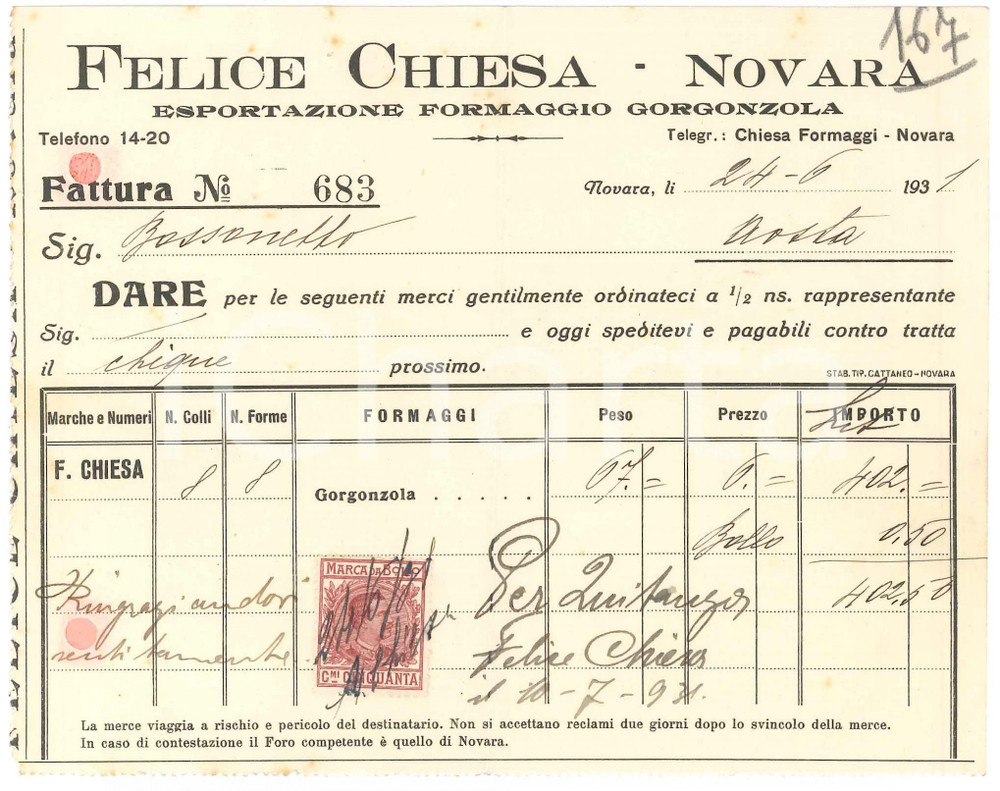 167
FELICE CHIESA - NOVARA
ESPORTAZIONE FORMAGGIO GORGONZOLA
Telefono 14-20
Telegr.: Chiesa Formaggi - Novara
Fattura No 683
Novara, li 24-6 1931
Sig. Bossonetto Aosta
DARE per le seguenti merci gentilmente ordinateci a 1/2 ns. rappresentante
Sig. e oggi speditevi e pagabili contro tratta
il prossimo.
STAB. TIP. CATTANEO - NOVARA
Marche e Numeri N. Colli N. Forme FORMAGGI Peso Prezzo IMPORTO
Lit
F. CHIESA 8 8 Gorgonzola . . . . . 67.= 6.= 402.=
Bollo 0,50
402,50
MARCA DA BOLLO
Ringraziandovi
sentitamente.
CMI CINQUANTA
Per Quitanza
Felice Chiesa
il 10-7-931.
La merce viaggia a rischio e pericolo del destinatario. Non si accettano reclami due giorni dopo lo svincolo della merce.
In caso di contestazione il Foro competente è quello di Novara.